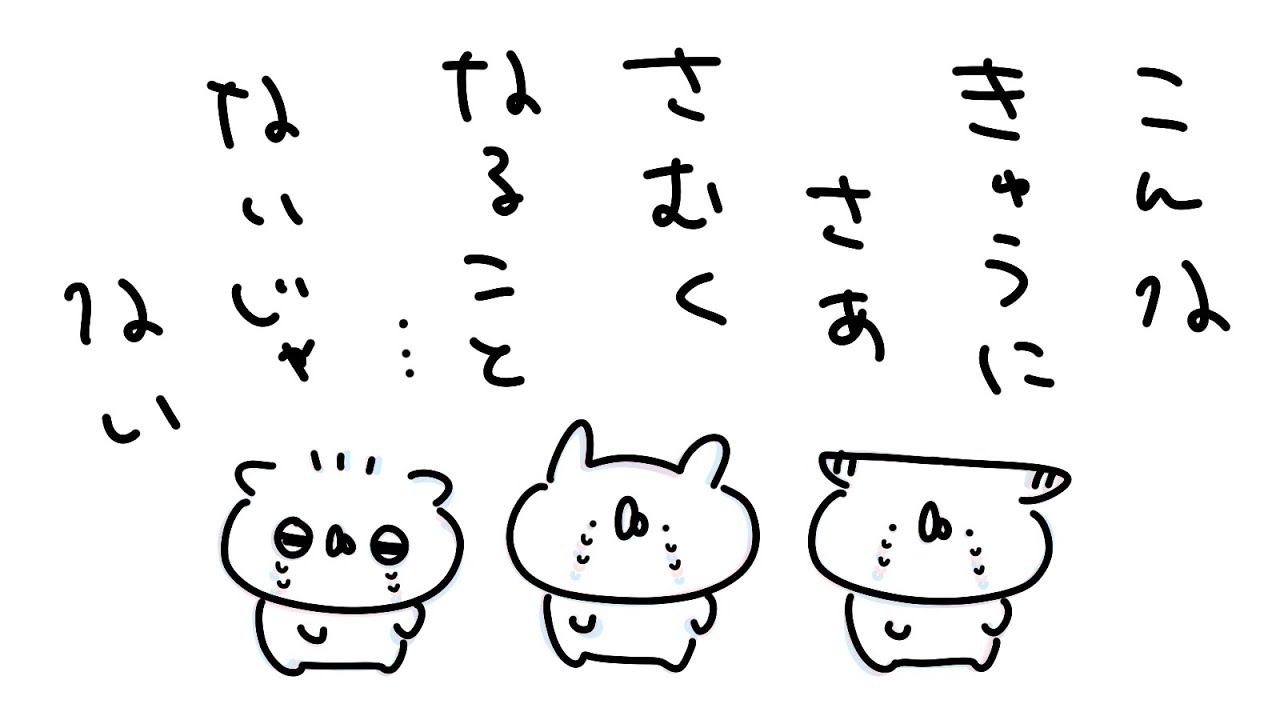 こんな
きゅうに
さあ
さむく
なること
…
ないじゃ
ない